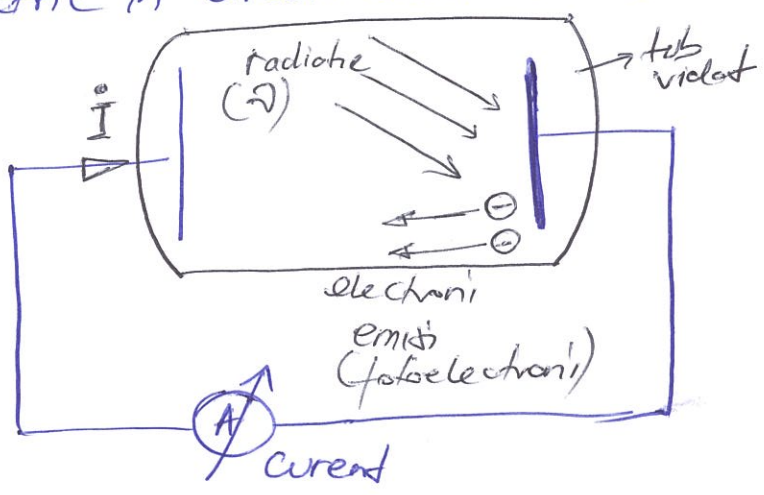 radiatie
(ν)
tub
vidat
I
electroni
emiși
(fotoelectroni)
A
curent